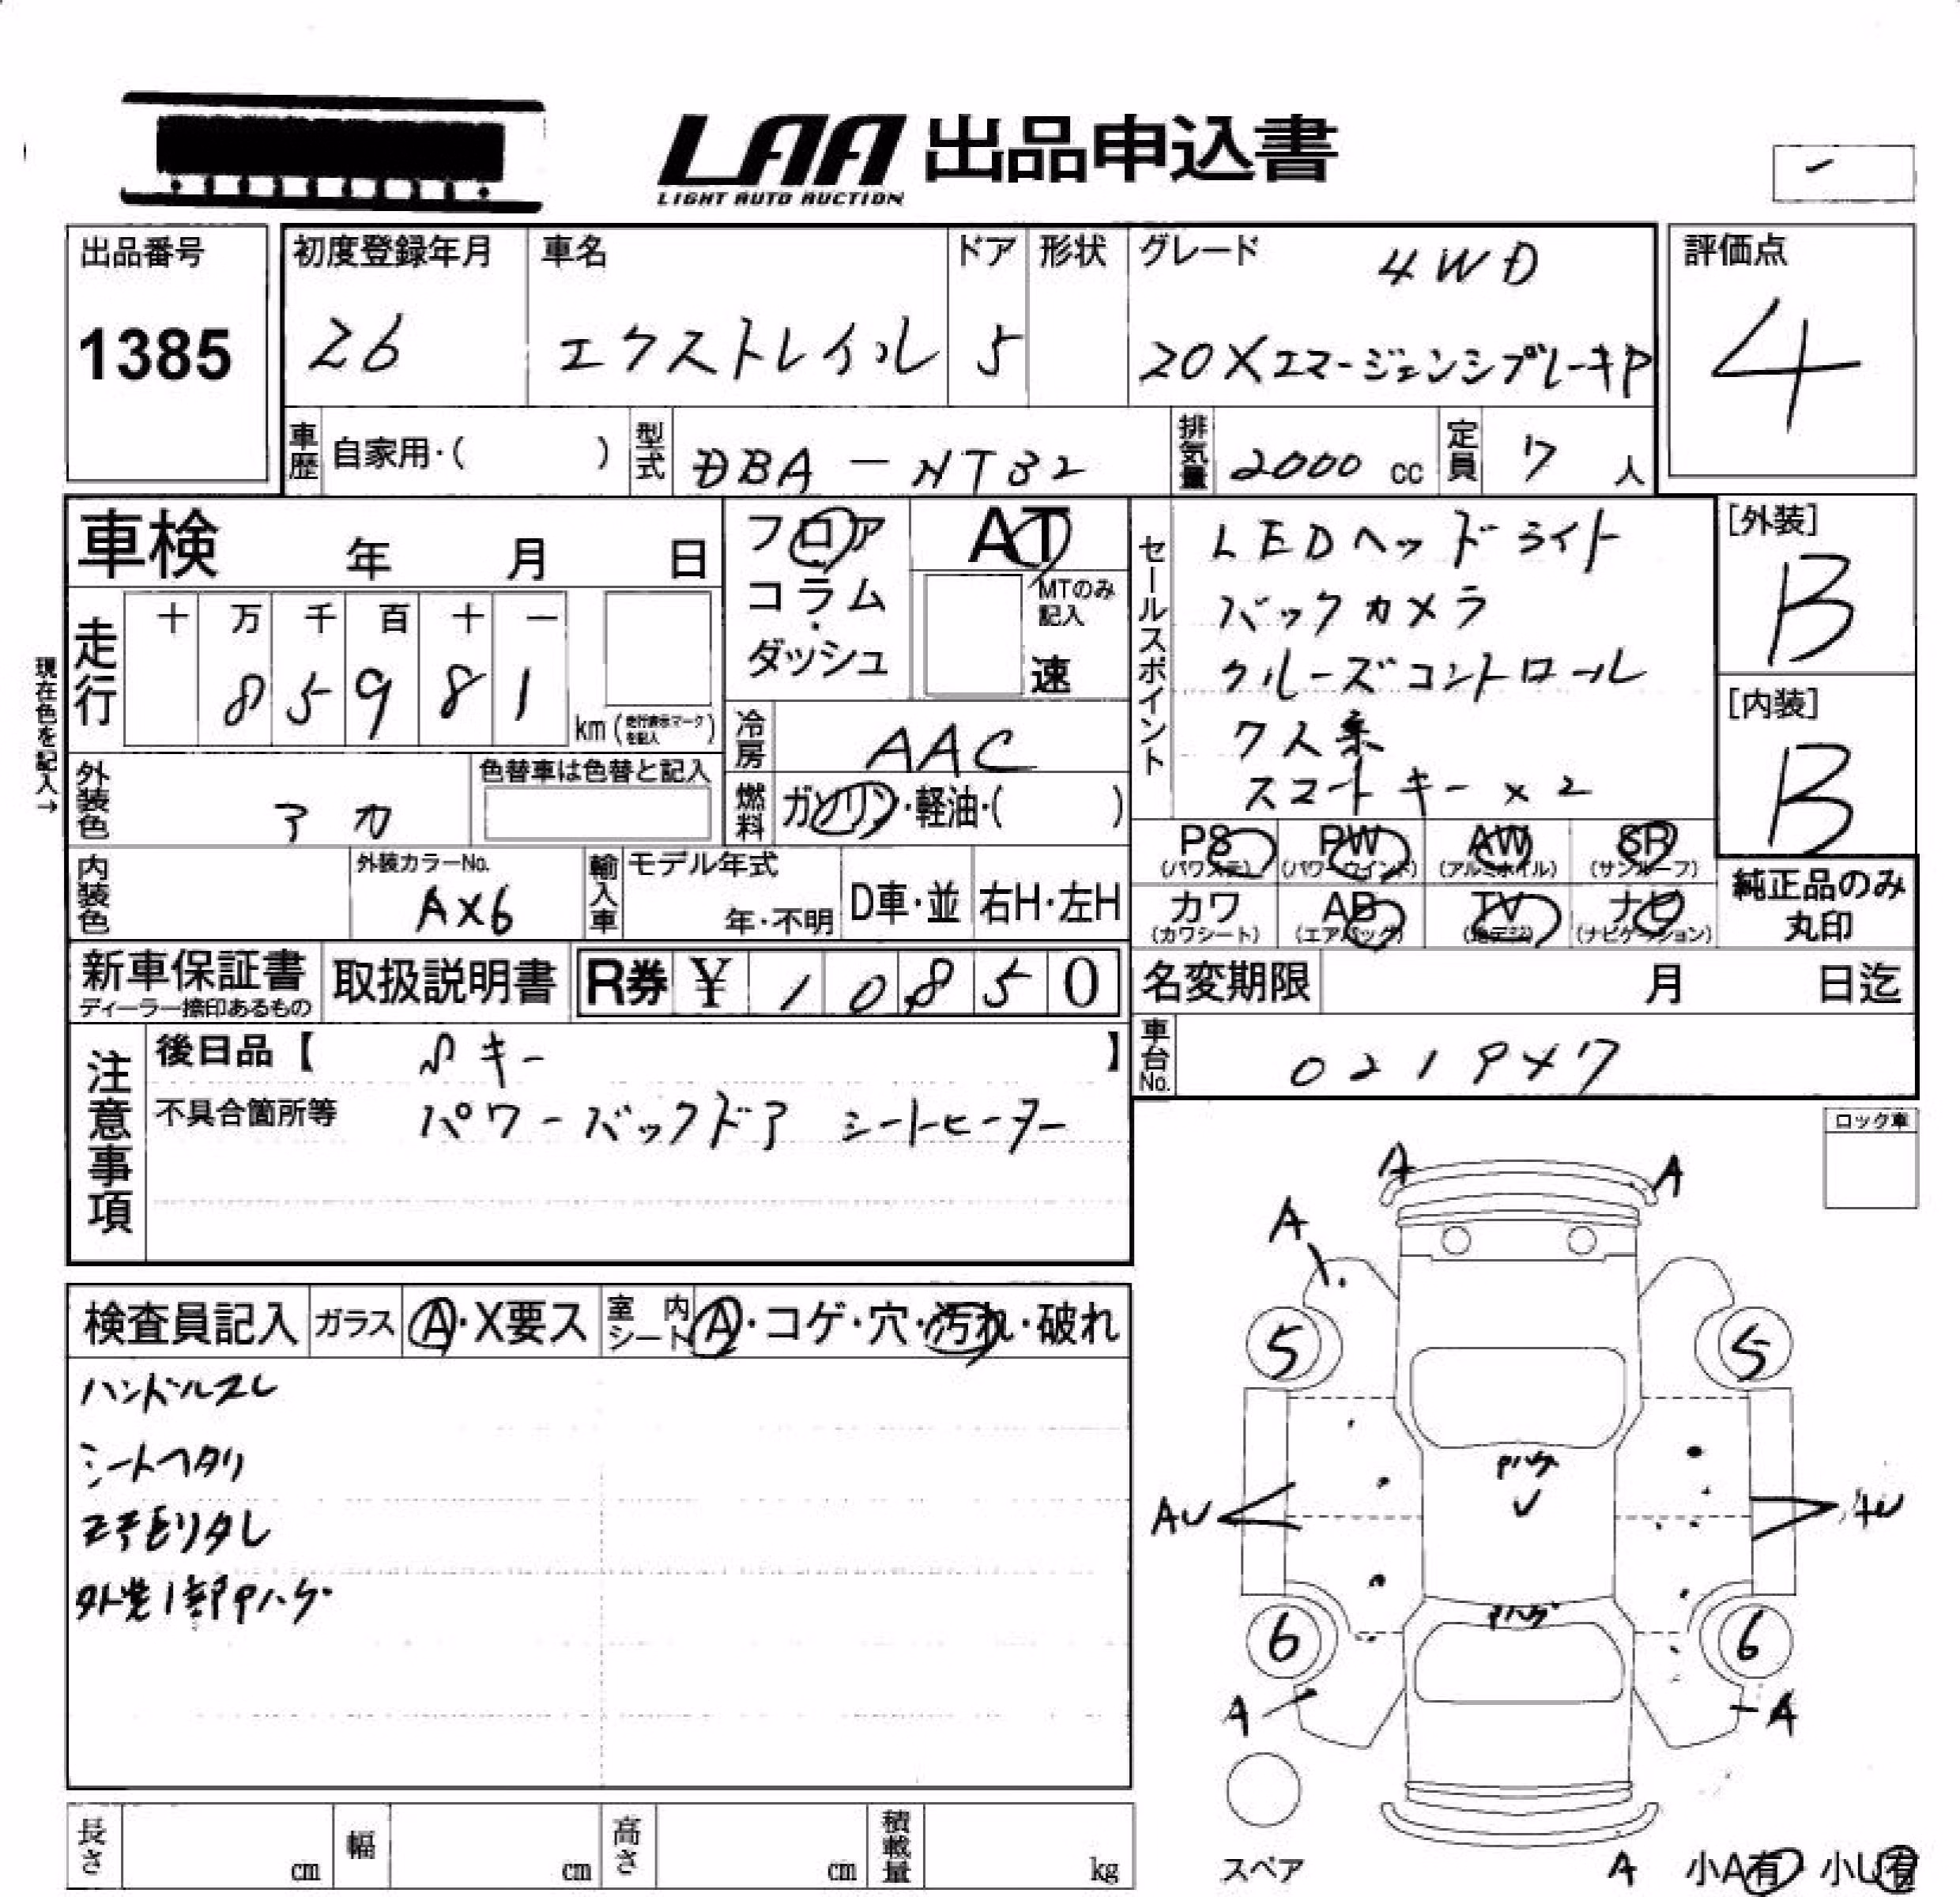 LAA 出品申込書
LIGHT AUTO AUCTION
出品番号
1385
初度登録年月
26
車名
エクストレイル
ドア
5
形状
グレード
4WD
20XエマージェンシブレーキP
評価点
4
車歴
自家用・( )
型式
DBA-NT32
排気量
2000 cc
定員
7 人
車検 年 月 日
フロア
コラム
ダッシュ
AT
MTのみ
記入
速
セールスポイント
LEDヘッドライト
バックカメラ
クルーズコントロール
7人乗
スマートキー×2
[外装]
B
[内装]
B
現在色を記入→
走行
十 万 千 百 十 一
8 5 9 8 1
km (走行表示マークを記入)
冷房
AAC
外装色
アカ
色替車は色替と記入
燃料
ガソリン・軽油・( )
PS
(パワステ)
PW
(パワーウインド)
AW
(アルミホイル)
SR
(サンルーフ)
カワ
(カワシート)
AB
(エアバッグ)
TV
(地デジ)
ナビ
(ナビゲーション)
純正品のみ
丸印
内装色
外装カラーNo.
AX6
輸入車
モデル年式
年・不明
D車・並
右H・左H
新車保証書
ディーラー捺印あるもの
取扱説明書
R券 ¥ 10850
名変期限 月 日迄
車台No.
注意事項
後日品【 キー 】
不具合箇所等
パワーバックドア シートヒーター
ロック車
検査員記入
ガラス
A・X要ス
室内シート
A・コゲ・穴・汚れ・破れ
ハンドルスレ
シートヘタリ
外装1部Pハゲ
A
A
A
5
5
Pハゲ
AU
AU
Pハゲ
6
6
A
A
スペア
A 小A有 小U有
長さ cm
幅 cm
高さ cm
積載量 kg